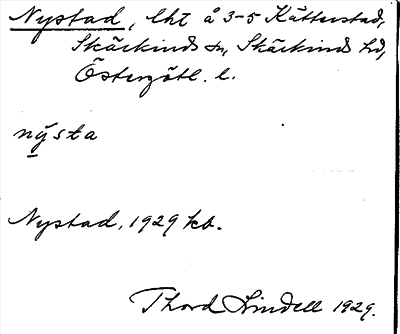 Nystad, lht å 3-5 Kätterstad,
Skärkinds sn, Skärkinds hd,
Östergötl. l.
nysta
Nystad, 1929 kb.
Thord Lindell 1929.